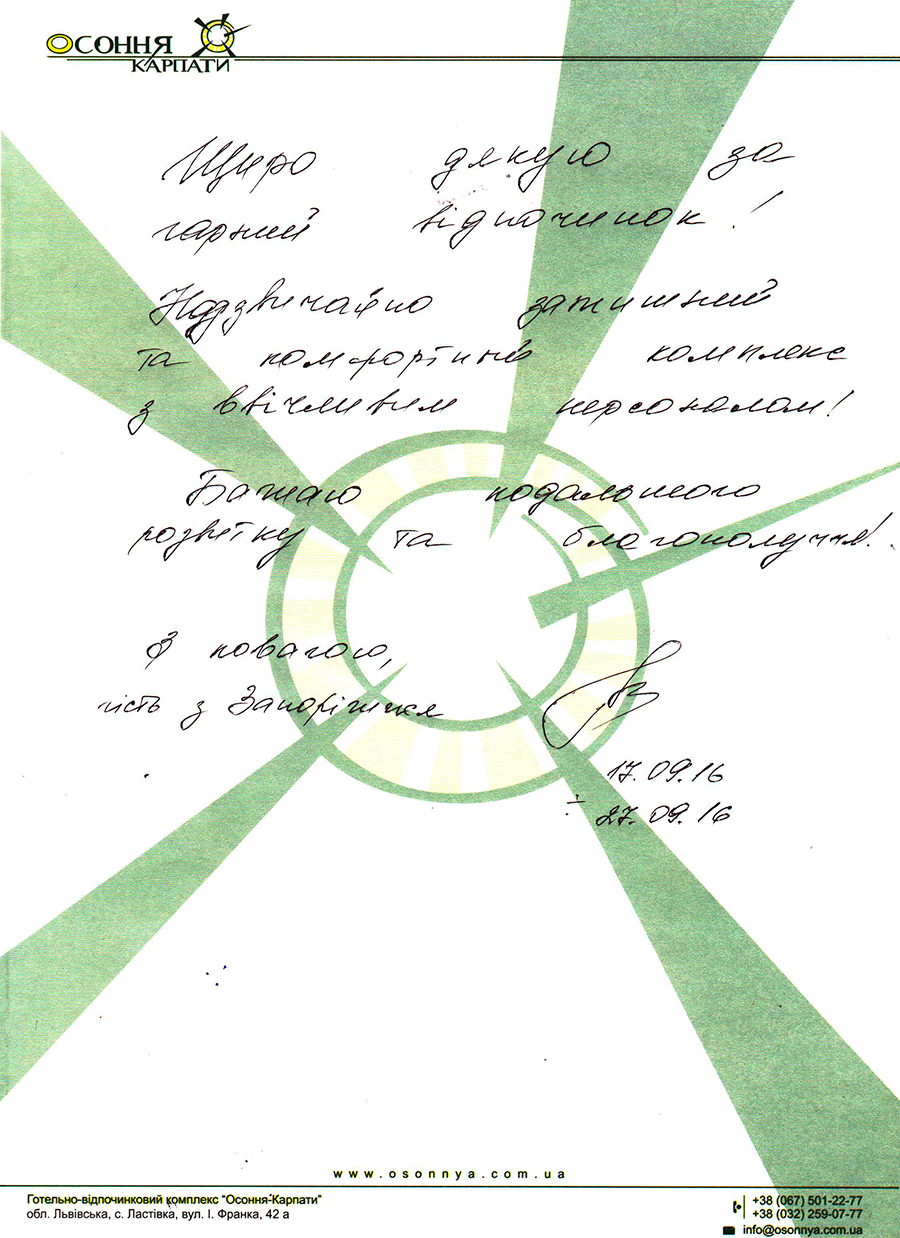 ОСОННЯ
КАРПАТИ
Щиро дякую за
гарний відпочинок!
Надзвичайно затишний
та комфортний комплекс
з ввічливим персоналом!
Бажаю подальшого
розвитку та благополуччя!
З повагою,
гість з Запоріжжя
17.09.16
÷ 27.09.16
www.osonnya.com.ua
Готельно-відпочинковий комплекс "Осоння-Карпати"
обл. Львівська, с. Ластівка, вул. І. Франка, 42 а
+38 (067) 501-22-77
+38 (032) 259-07-77
info@osonnya.com.ua